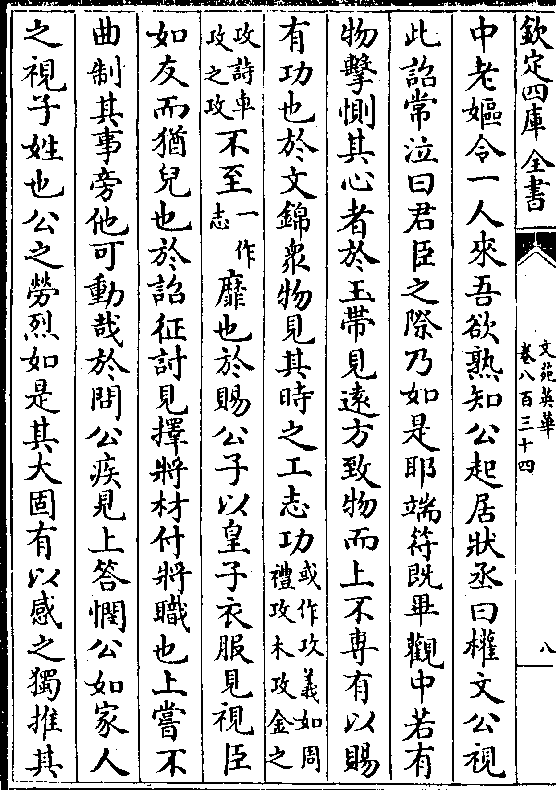 欽定四庫全書
文苑英華
卷八百三十四
八
中老嫗令一人來吾欲熟知公起居狀丞曰權文公視
此詔常泣曰君臣之際乃如是耶端符既畢觀中若有
物擊惻其心者於玉帶見遠方致物而上不專有以賜
有功也於文錦衆物見其時之工志功或作攻義如周禮攻木攻金之
攻詩車攻之攻不至一作志靡也於賜公子以皇子衣服見視臣
如友而猶兒也於詔征討見擇將材付將職也上嘗不
曲制其事旁他可動哉於問公疾見上答憫公如家人
之視子姓也公之勞烈如是其大固有以感之獨推其